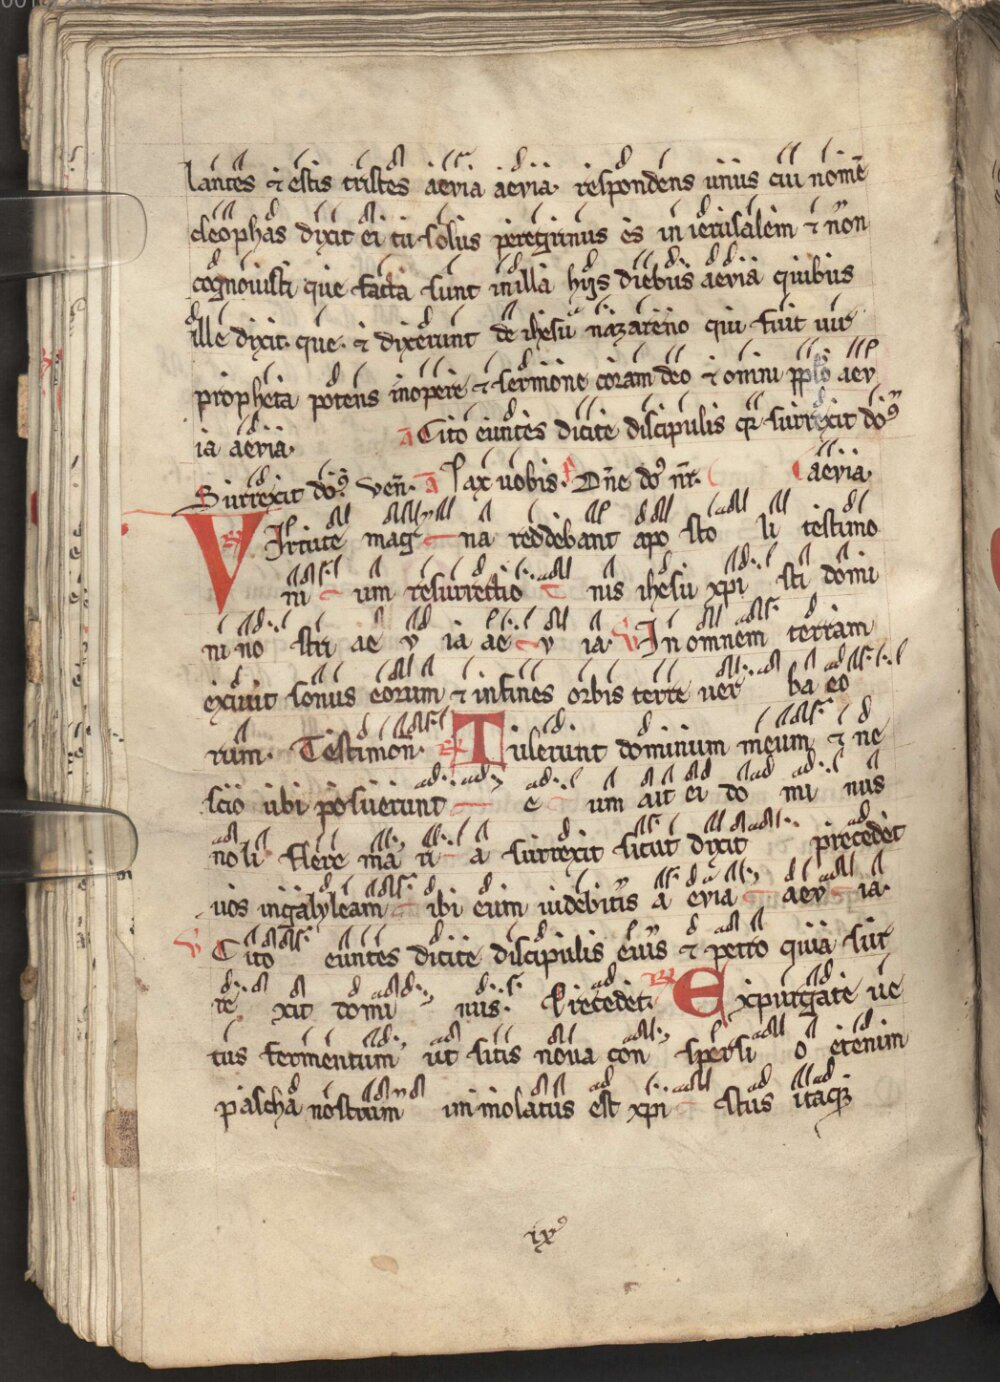 lantes & estis tristes aevia aevia. respondens unus cui nomē
cleophas dixit ei tu solus peregrinus es in ierusalem & non
cognouisti que facta sunt in illa hijs diebus aevia quibus
ille dixit. que. & dixerunt de ihesu nazareno qui fuit uir
propheta potens inopere & sermione coram deo & omni pplo aev
ia aevia. a Cito euntes dicite discipulis qr surrexit do⁹
Surrexit do⁹ ven̄. a Pax uobis. Dn̄e do⁹ nr̄. aevia.
VIrtute mag na reddebant apo sto li testimo
ni um resurrectio nis ihesu xpi sti domi
ni no stri ae v ia ae v ia. V In omnem terram
exiuit sonus eorum & infines orbis terre uer ba eo
rum. Testimon. R Tulerunt dominum meum & ne
scio ubi posuerunt e um ait ei do mi nus
noli flere ma ri a surrexit sicut dixit precedet
uos ingalyleam ibi eum uidebitis a evia aev ia.
V Cito euntes dicite discipulis eius & petro quia sur
re xit domi nus. Precedet. R Expurgate ue
tus fermentum ut sitis noua con spersi o etenim
pascha nostrum immolatus est xpi stus itaqz
ix⁹